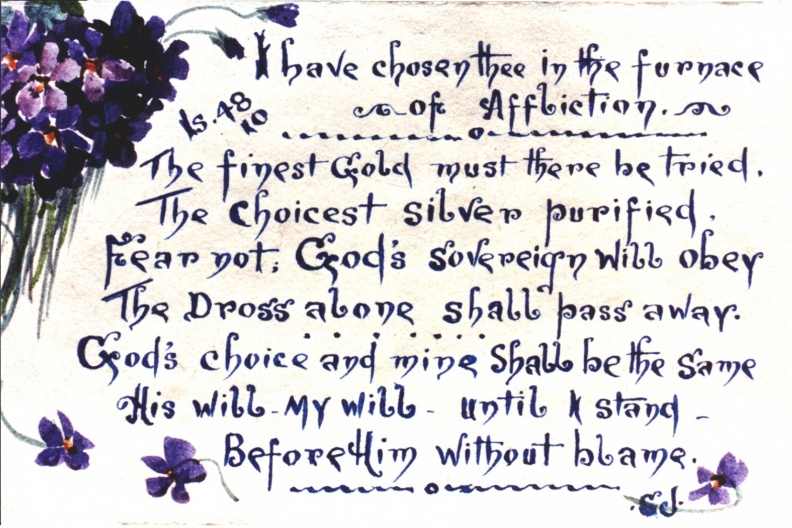 I have chosen thee in the furnace
of Affliction.
Is. 48
10
The finest Gold must there be tried.
The choicest silver purified.
Fear not; God's sovereign will obey
The Dross alone shall pass away.
God's choice and mine shall be the same
His will - My will - until I stand -
Before Him without blame.
SJ.